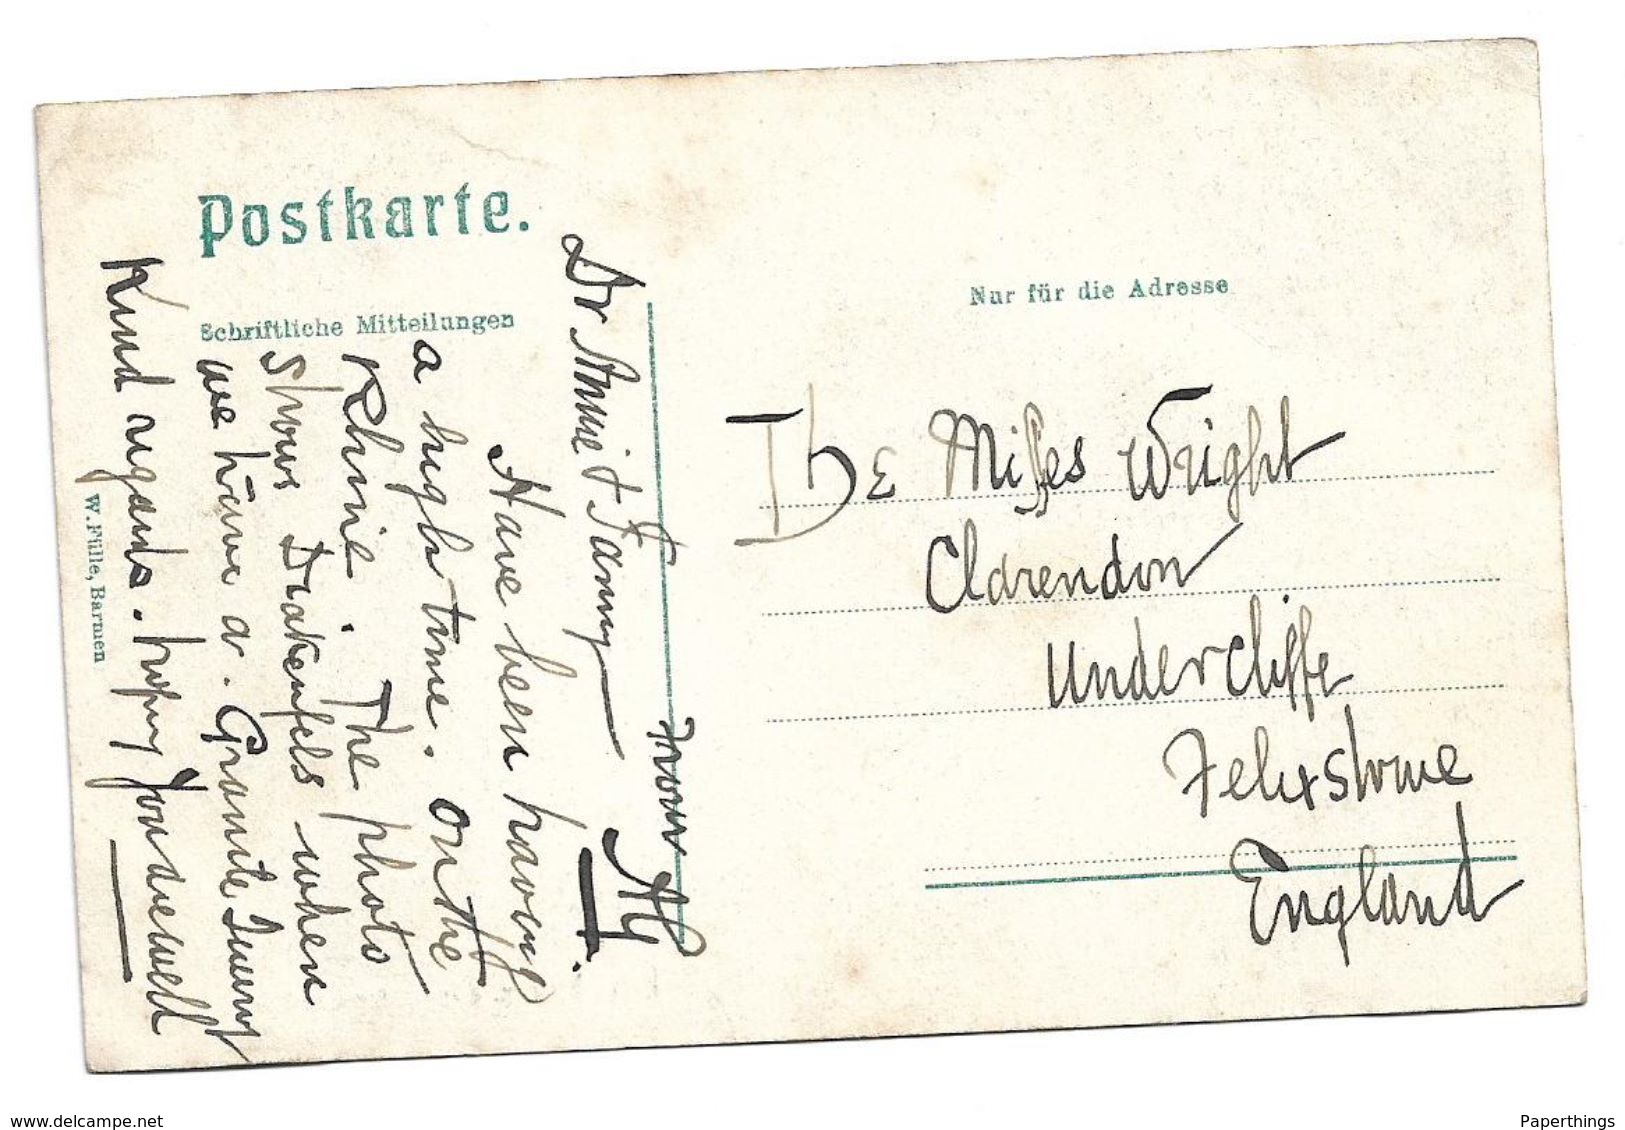 Postkarte.
Schriftliche Mitteilungen
Nur für die Adresse
W. Fülle, Barmen
Dr Annie & Fanny
Have been having
a high time. on the
Rhine. The photo
shows Drakenfels when
we have a. Granite
Kind regards. hoping you are well
from
The Misses Wright
Clarendon
Undercliffe
Felixstowe
England
www.delcampe.net
Paperthings